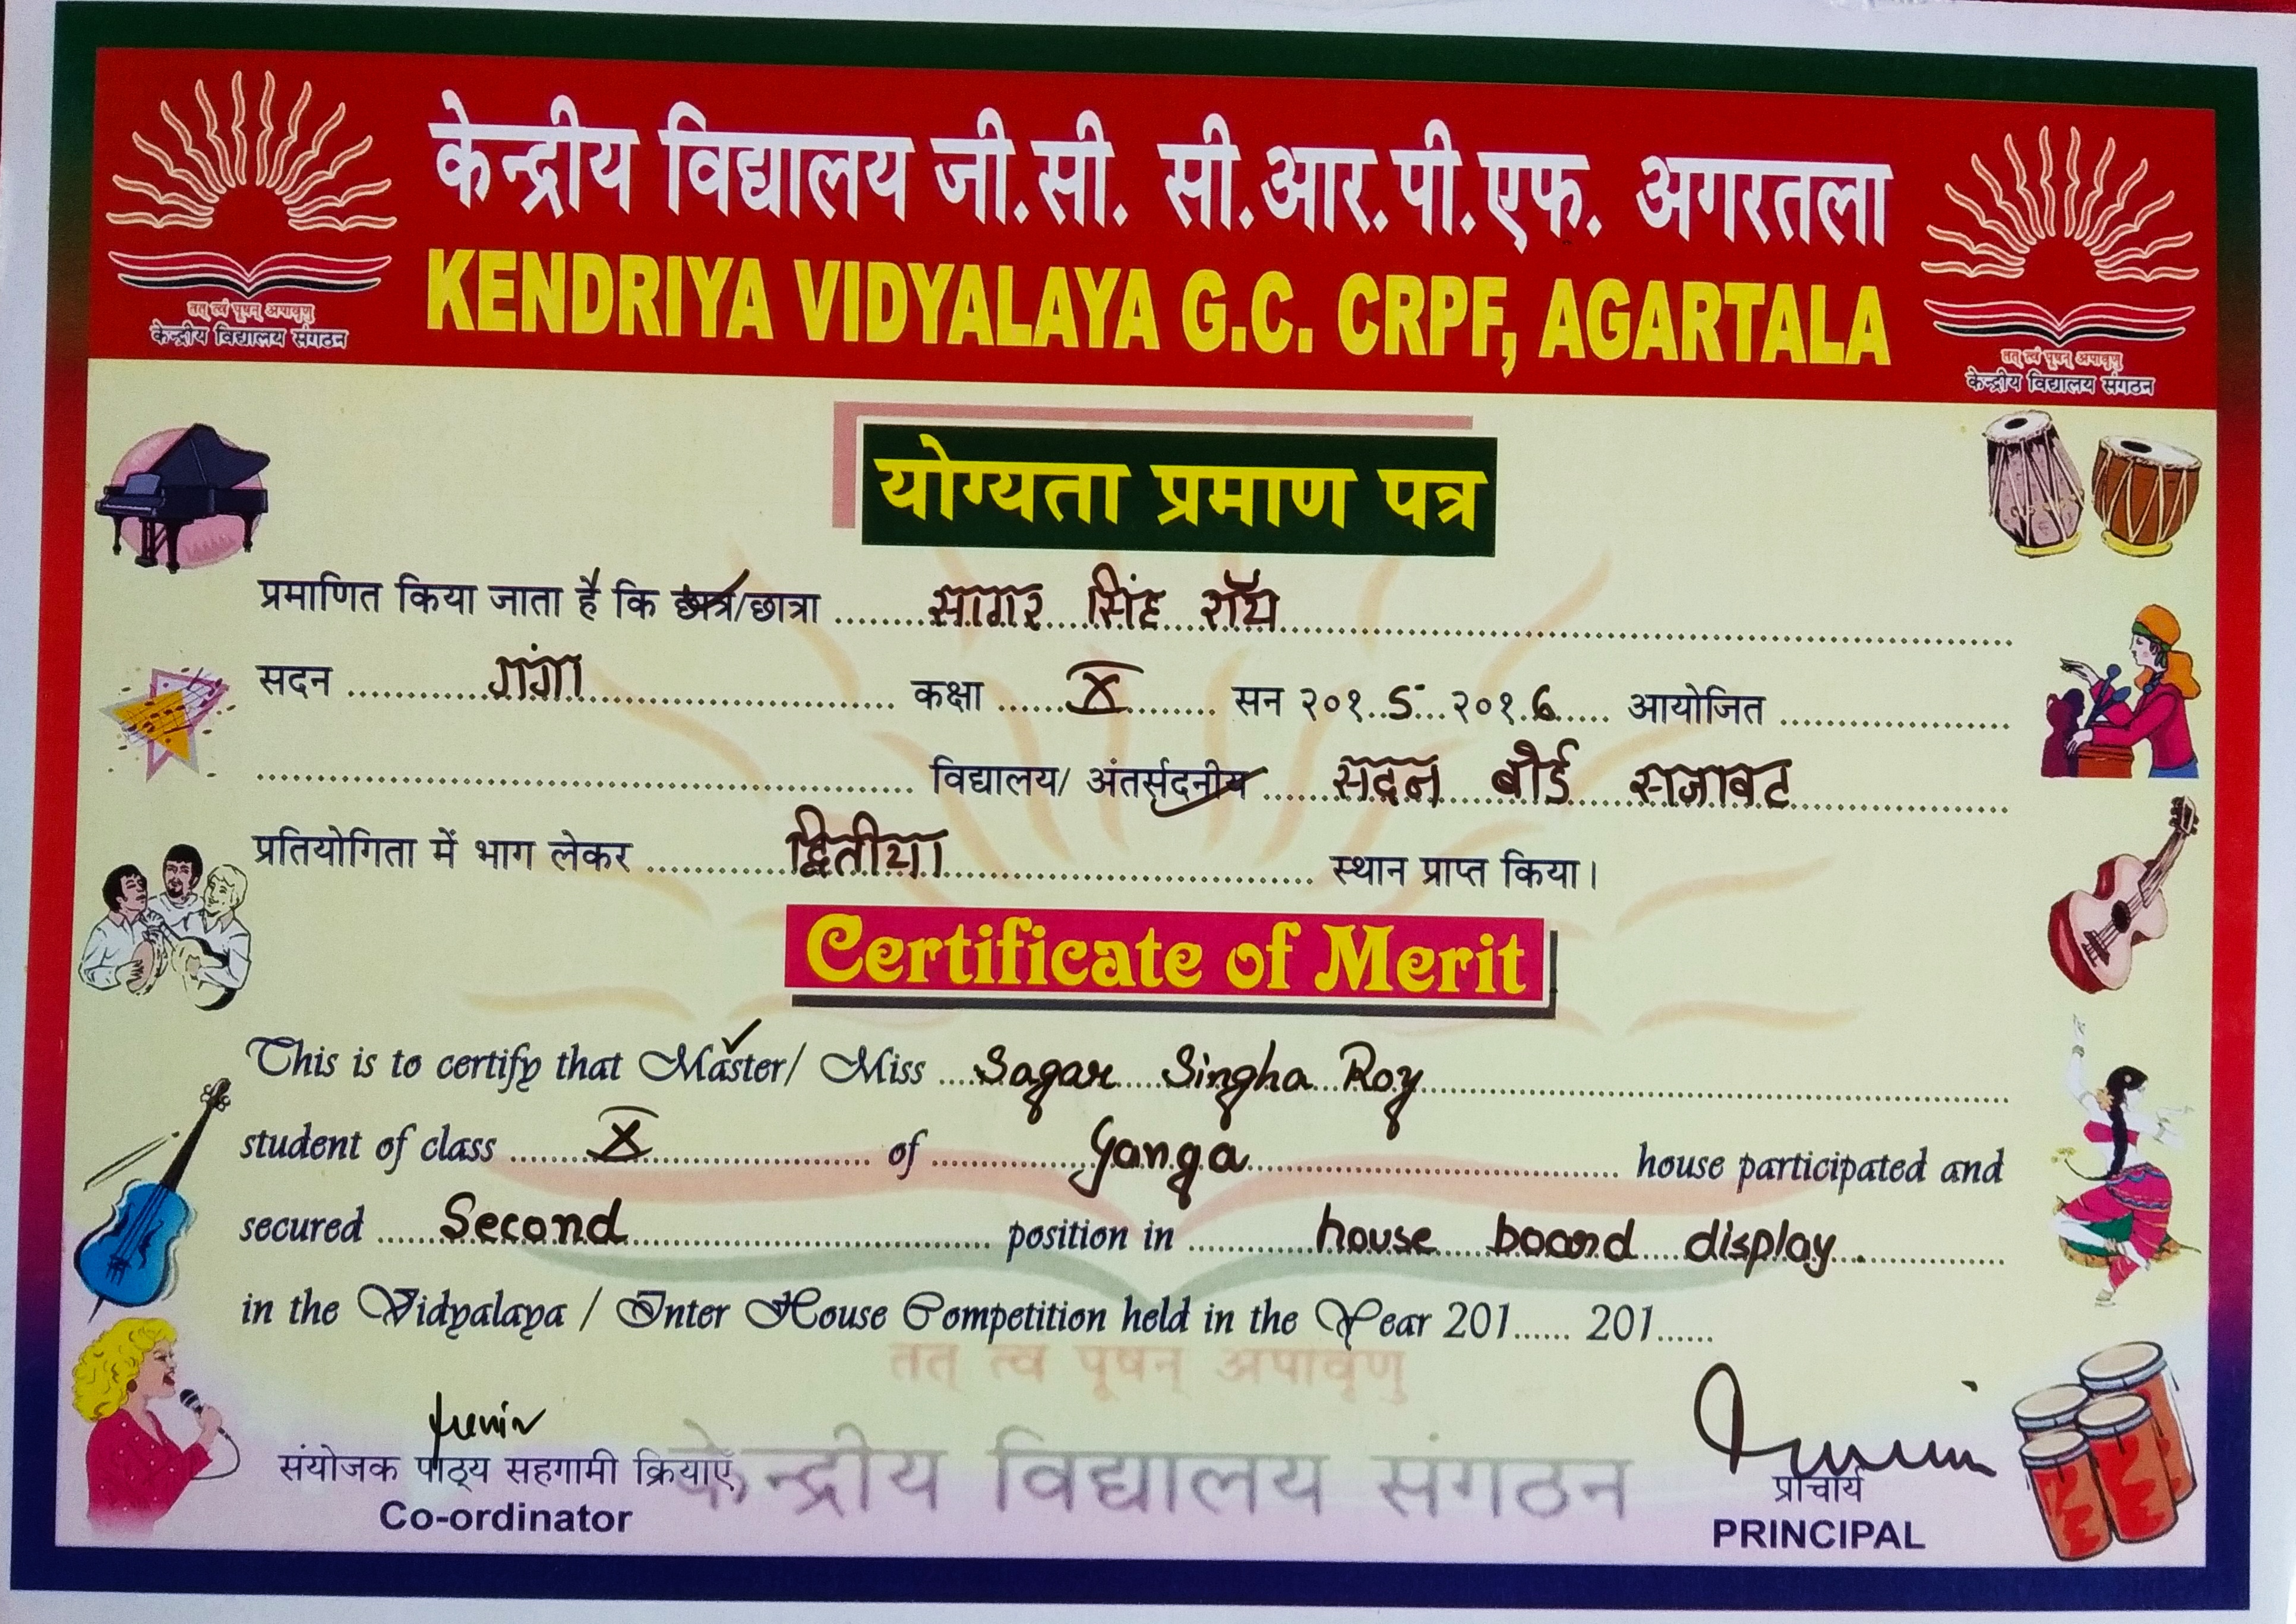 केन्द्रीय विद्यालय जी.सी. सी.आर.पी.एफ. अगरतला
KENDRIYA VIDYALAYA G.C. CRPF, AGARTALA
तत् त्वं पूषन् अपावृणु
केन्द्रीय विद्यालय संगठन
तत् त्वं पूषन् अपावृणु
केन्द्रीय विद्यालय संगठन
योग्यता प्रमाण पत्र
प्रमाणित किया जाता है कि छात्र/छात्रा ........ सागर सिंह रॉय ........
सदन ........ गंगा ........ कक्षा ........ X ........ सन २०१..5...२०१.6...... आयोजित ........
........ विद्यालय/ अंतर्सदनीय ........ सदन बोर्ड सजावट ........
प्रतियोगिता में भाग लेकर ........ द्वितीया ........ स्थान प्राप्त किया।
Certificate of Merit
This is to certify that Master/ Miss ........ Sagar Singha Roy ........
student of class ........ X ........ of ........ Ganga ........ house participated and
secured ........ Second ........ position in ........ house board display. ........
in the Vidyalaya / Inter House Competition held in the Year 201...... 201......
तत् त्व पूषन् अपावृणु
केन्द्रीय विद्यालय संगठन
संयोजक पाठ्य सहगामी क्रियाएँ
Co-ordinator
प्राचार्य
PRINCIPAL